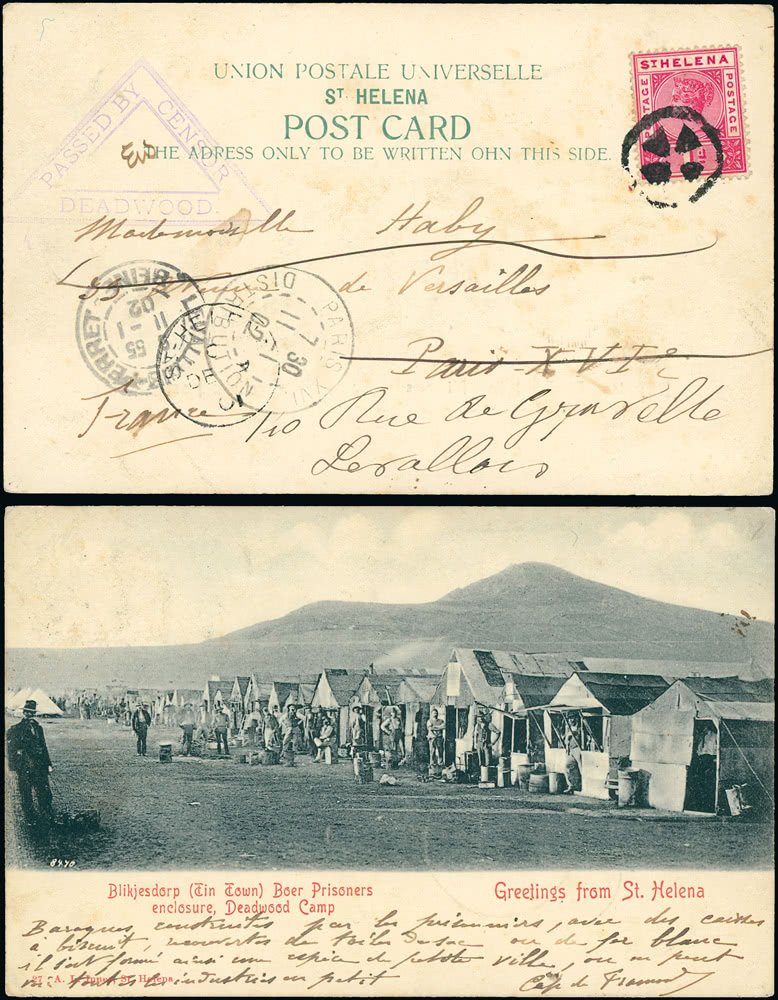 UNION POSTALE UNIVERSELLE
ST HELENA
POST CARD
THE ADRESS ONLY TO BE WRITTEN OHN THIS SIDE.
ST HELENA
POSTAGE
POSTAGE
PASSED BY CENSOR
DEADWOOD.
Mademoiselle Haby
55 de Versailles
Paris XVIe
France
10 Rue de Gravelle
Levallois
PARIS XVI
DISTRIBUTION
7 30
11 - 1
02
LEVALLOIS-PERRET
SEINE
11 - 1
02
ST-HELENA
8440
Blikjesdorp (Tin Town) Boer Prisoners
enclosure, Deadwood Camp
Greetings from St. Helena
Baraques construites par les prisonniers, avec des caisses
à biscuit, recouvertes de toiles de sac ou de fer blanc
il s'est formé ainsi une espèce de petite ville, où on peut
toutes les industries en petit
Cap de
27 A. L. Innes, St. Helena